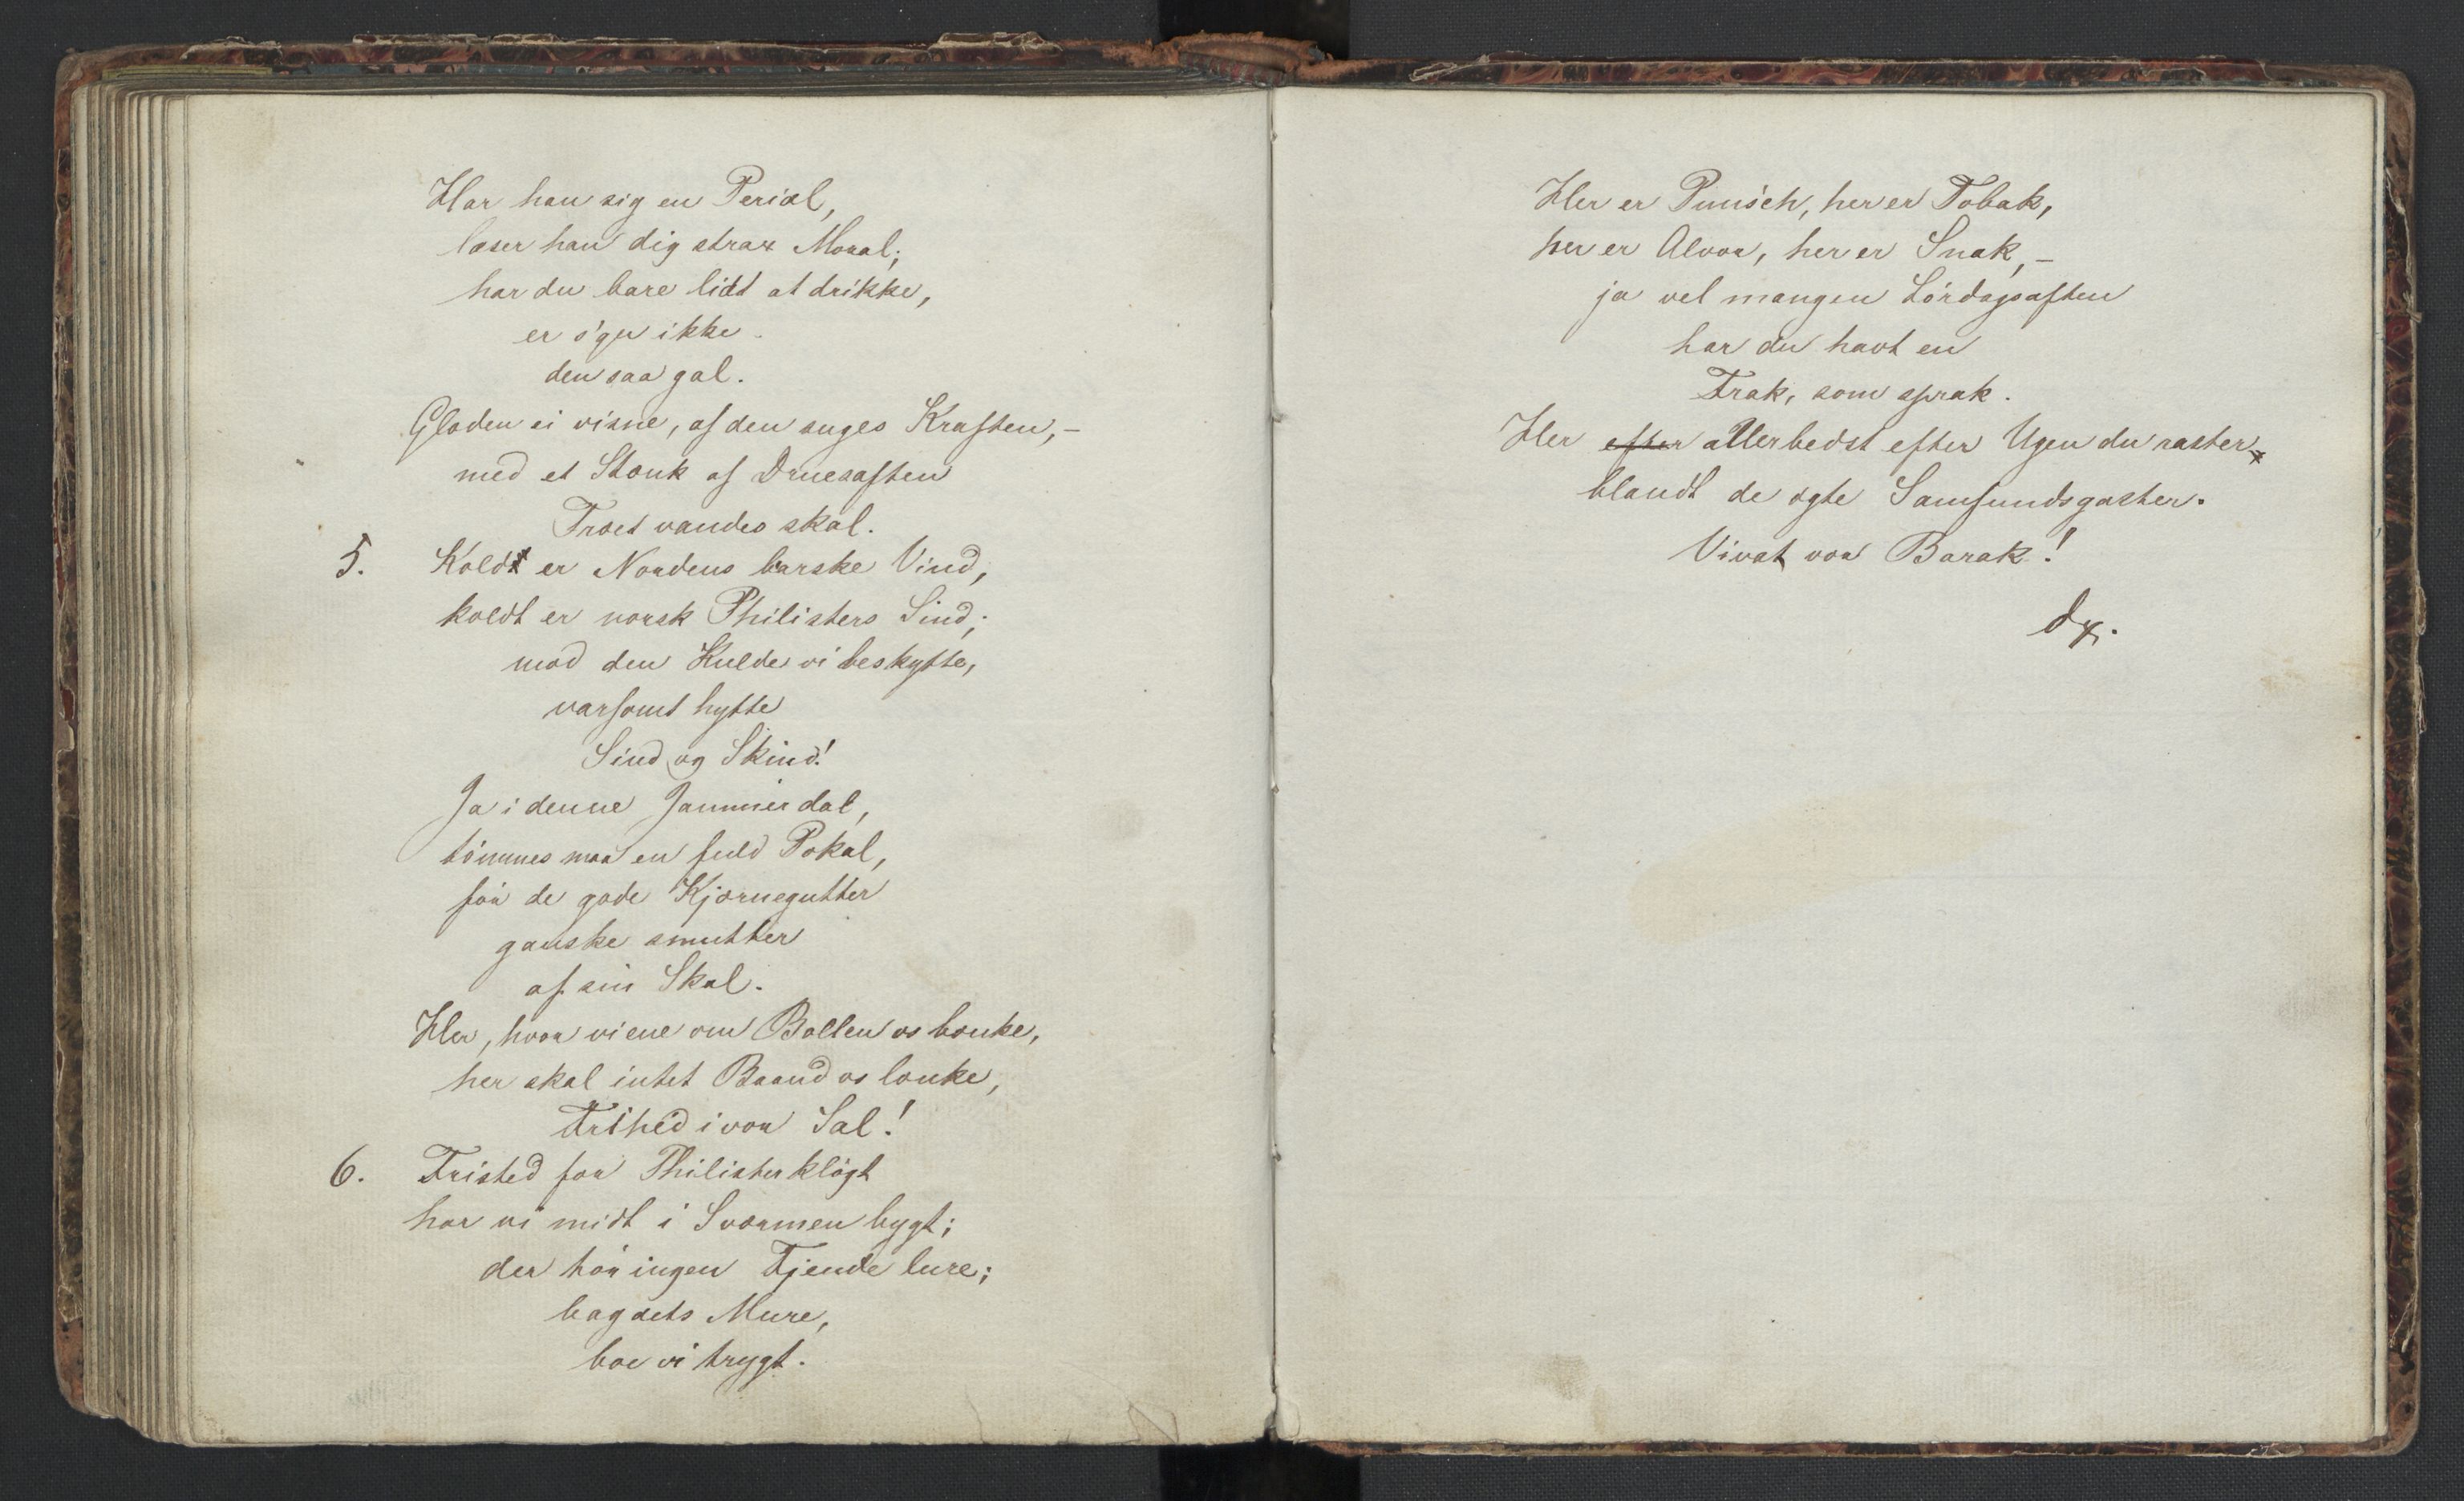 Har han sig en Perial,
læser han dig strax Moral;
har du bare lidt at drikke,
er s'gu ikke
den saa gal.
Glæden ei visne, af den suges Kraften, –
med et Stænk af Druesaften
Træet vandes skal.
5. Koldt er Nordens barske Vind,
koldt er norsk Philisters Sind;
mod den Kulde vi beskytte,
varsomt hytte
Sind og Skind!
Ja i denne Jammerdal,
tömmes maa en fuld Pokal,
för de gode Kjærnegutter
ganske smutter
af sin Skal.
Her, hvor vi ene om Bollen os bænke,
her skal intet Baand os lænke,
Frihed i vor Sal!
6. Fristed for Philisterklögt
har vi midt i Sværmen bygt;
der tör ingen Fjende lure;
bag dets Mure,
boe vi trygt.
Her er Punsch, her er Tobak,
her er Alvor, her er Snak, –
ja vel mangen Lördagsaften
har du havt en
Frak, som sprak.
Her efter allerbedst efter Ugen du raster
blandt de ægte Samfundsgaster.
Vivat vor Barak!
dx.